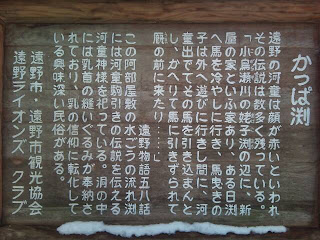 かっぱ渕
遠野の河童は顔が赤いといわれ
その伝説は数多く残っている。
「小烏瀬川の姥子渕の辺に、新
屋の家といふ家あり、ある日渕
へ馬を冷やしに行き、馬曳きの
子は外へ遊びに行きし間に、河
童出でてその馬を引き込まんと
し、かへりて馬に引きずられて
厩の前に来たり……」
遠野物語五八話
この阿部屋敷の水ごうの流れ渕
には河童駒引きの伝説を伝える
河童神様を祀っている。洞の中
には乳首の縫いぐるみが奉納さ
れており、乳の信仰に転化して
いる興味深い民俗がある。
遠野市・遠野市観光協会
遠野ライオンズ クラブ